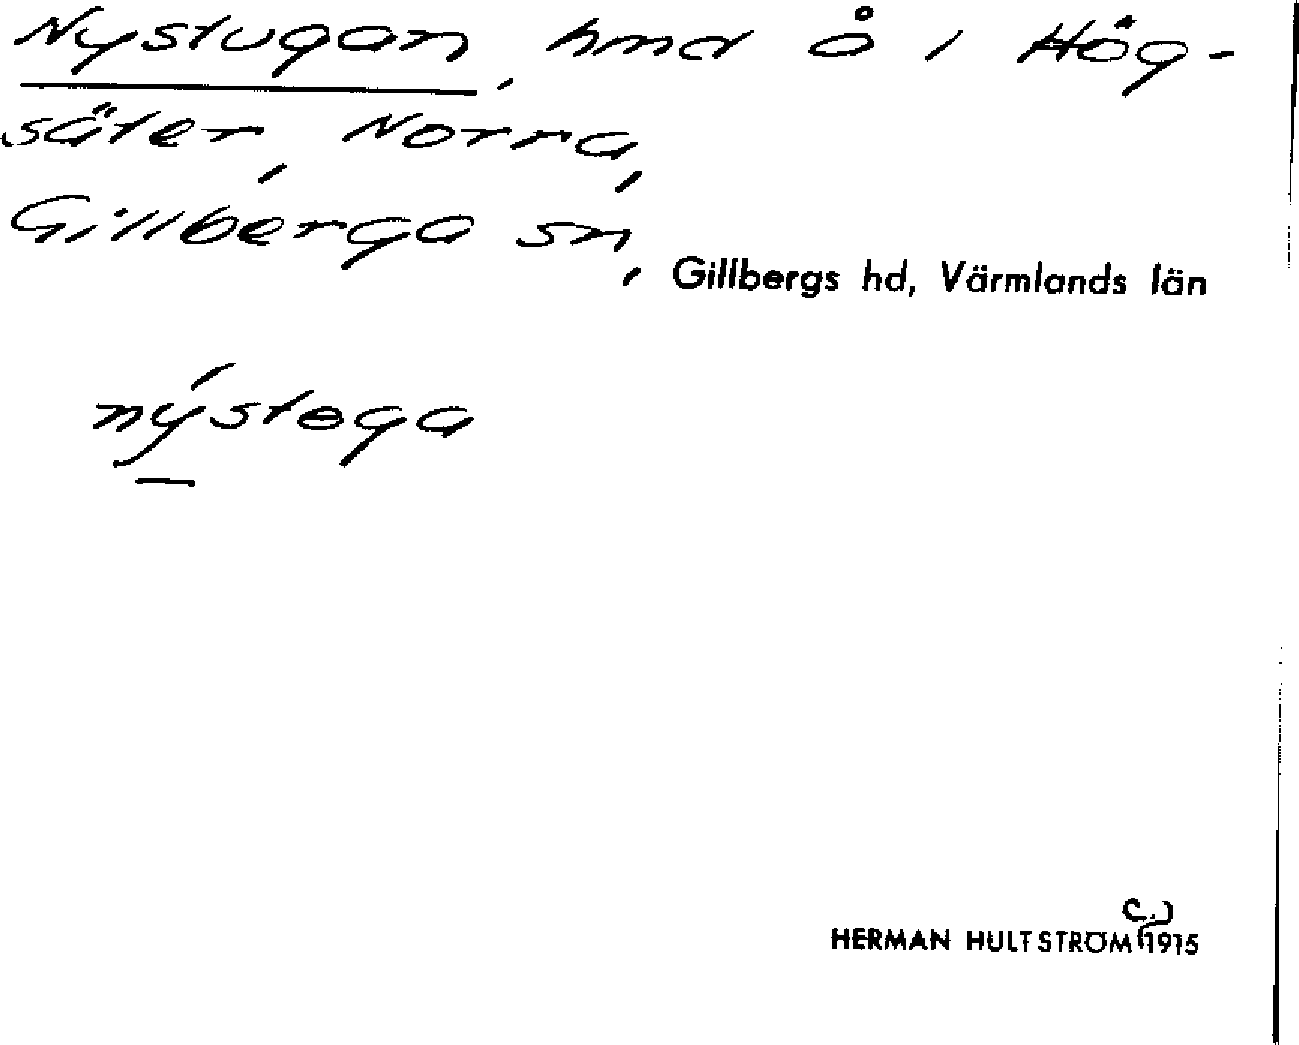 Nystugan, hmd å i Hög-
säter, Norra,
Gillberga sn, Gillbergs hd, Värmlands län
nýstega
HERMAN HULTSTRÖM (c.) 1915